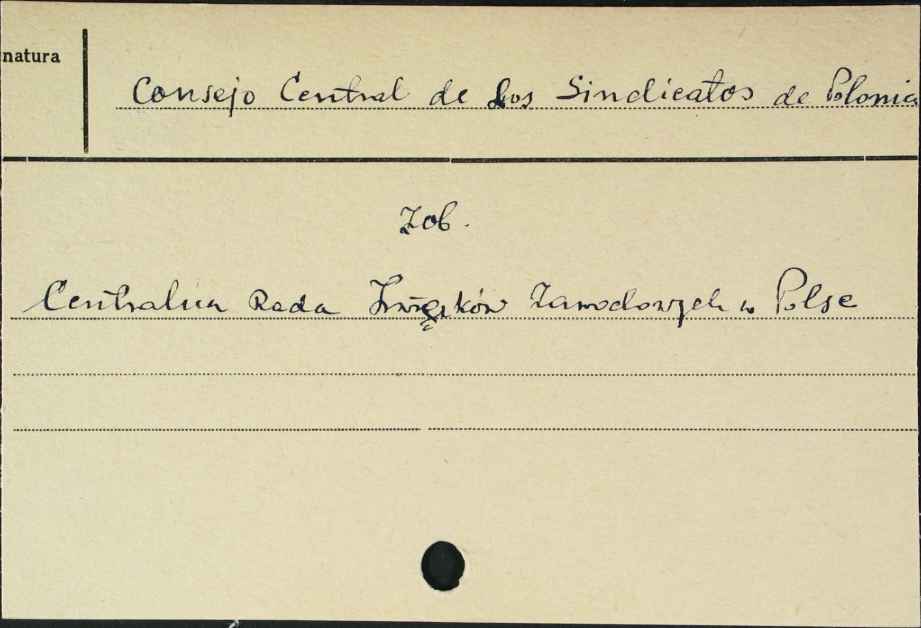 natura
Consejo Central de los Sindicatos de Polonia
Zob.
Centralna Rada Związków Zawodowych w Polsce